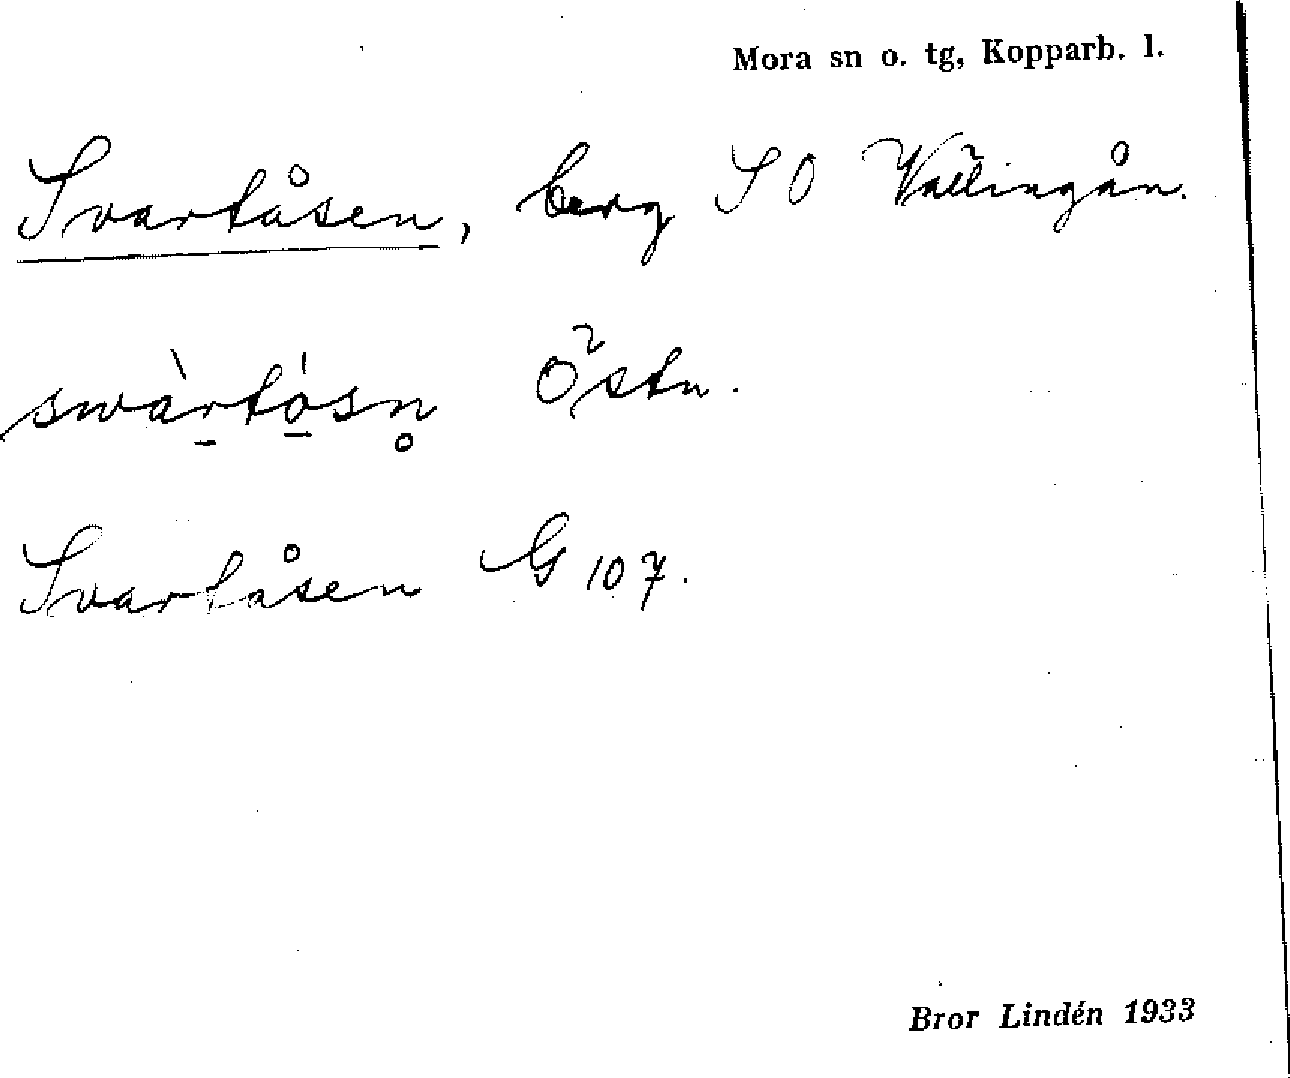 Mora sn o. tg, Kopparb. l.
Svartåsen, berg SO Vallingån.
swàrtósn Östn.
Svartåsen G 107.
Bror Lindén 1933